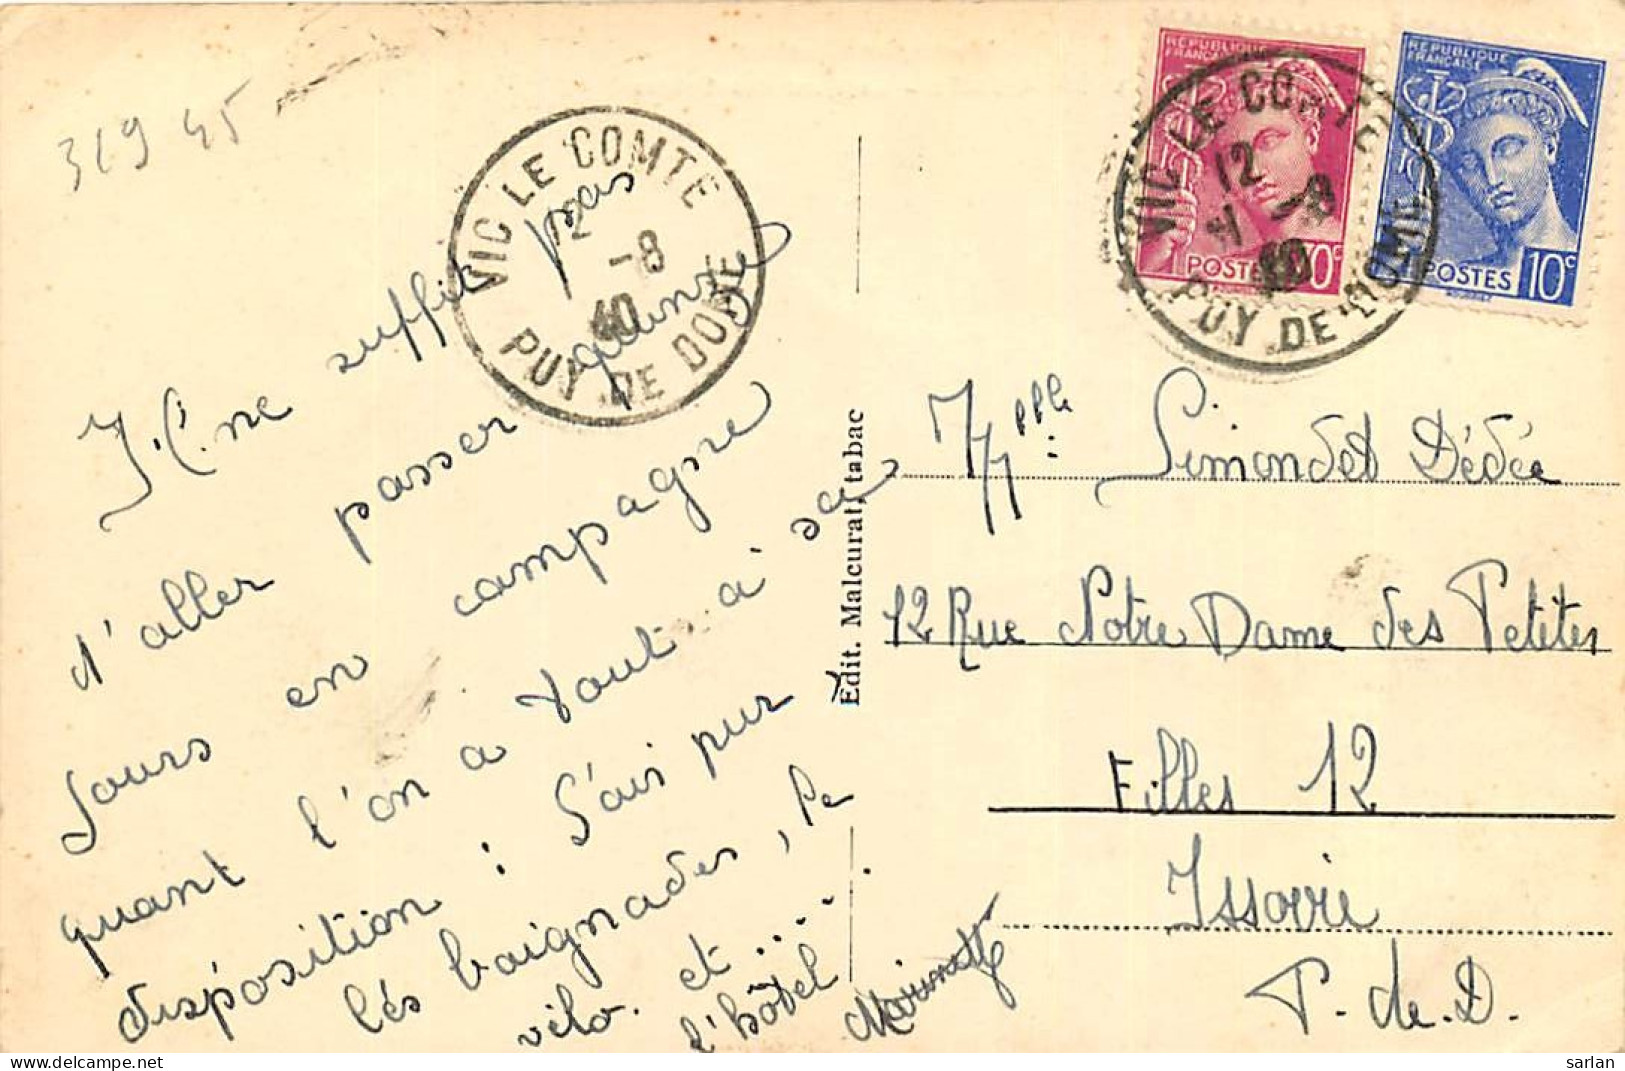 319 45
VIC LE COMTE
12
-8
40
PUY DE DOME
REPUBLIQUE
FRANCAISE
POSTES
VIC LE COMTE
12
-8
40
PUY DE DOME
REPUBLIQUE
FRANCAISE
POSTES 10c
Il ne suffit pas
d'aller passer quinze
Jours en campagne
quant l'on a tout à sa
disposition : l'air pur
les baignades, le
vélo. et .....
l'hôtel
Edit. Malcurat, tabac
Mlle Simondet Dédée
12 Rue Notre Dame des Petites
Filles 12
Issoire
P. de. D.
sarlan